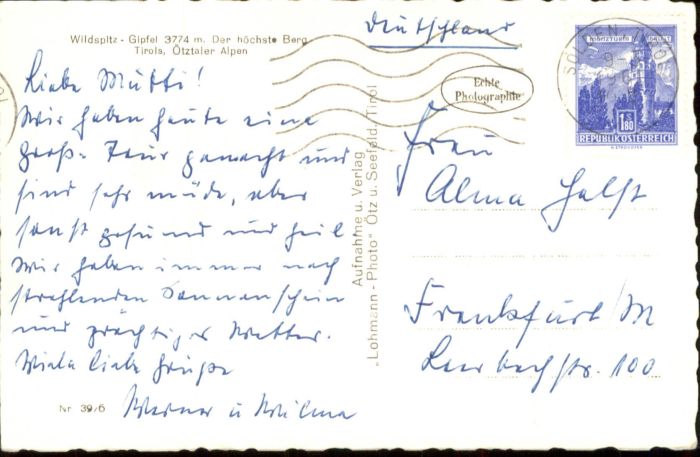 Wildspitz - Gipfel 3774 m. Der höchste Berg
Tirols, Ötztaler Alpen
Liebe Mutti!
Wir haben heute eine
große Tour gemacht und
sind sehr müde, aber
sonst gesund und heil.
Wir haben immer noch
strahlenden Sonnenschein
und prächtiges Wetter.
Viele liebe Grüße
Werner u Wilma
Nr 39/6
Aufnahme u. Verlag
„Lohmann - Photo" Ötz u. Seefeld, Tirol
Deutschland
Echte
Photographie
SÖLDEN
1.80
REPUBLIK ÖSTERREICH
Frau
Alma
Frankfurt/M
Leerbachstr. 100